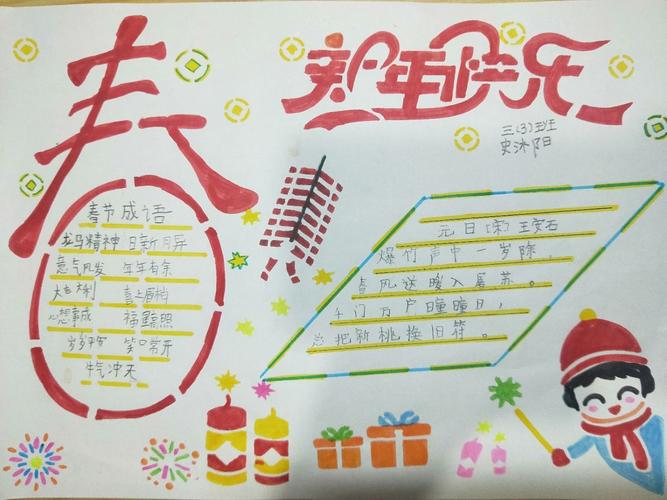 春
新年快乐
三(3)班
史沐阳
春节成语
龙马精神 日新月异
意气风发 年年有余
大吉大利 喜上眉梢
心想事成 福星高照
岁岁平安 笑口常开
牛气冲天
元日 [宋] 王安石
爆竹声中一岁除，
春风送暖入屠苏。
千门万户曈曈日，
总把新桃换旧符。